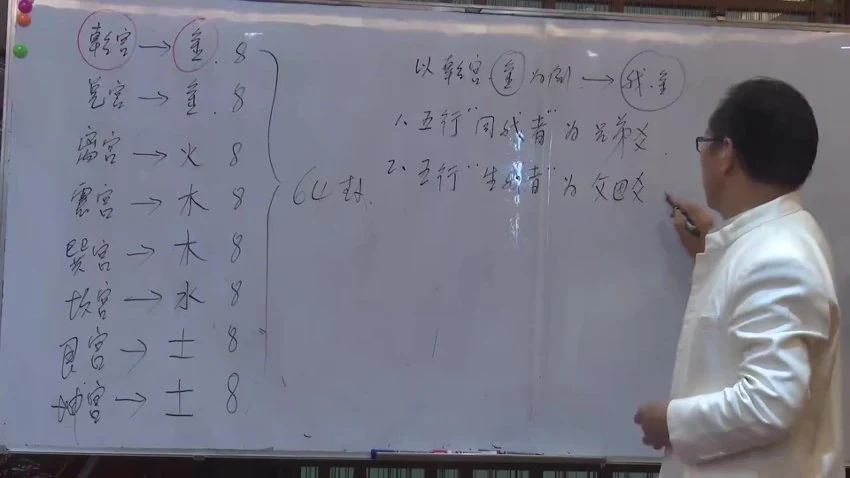 乾宫→金.8
兑宫→金.8
离宫→火 8
震宫→木 8
巽宫→木 8
坎宫→水 8
艮宫→土 8
坤宫→土 8
64卦.
以乾宫金为例.→我.金
1、五行"同我者"为兄弟爻.
2、五行"生我者"为父母爻